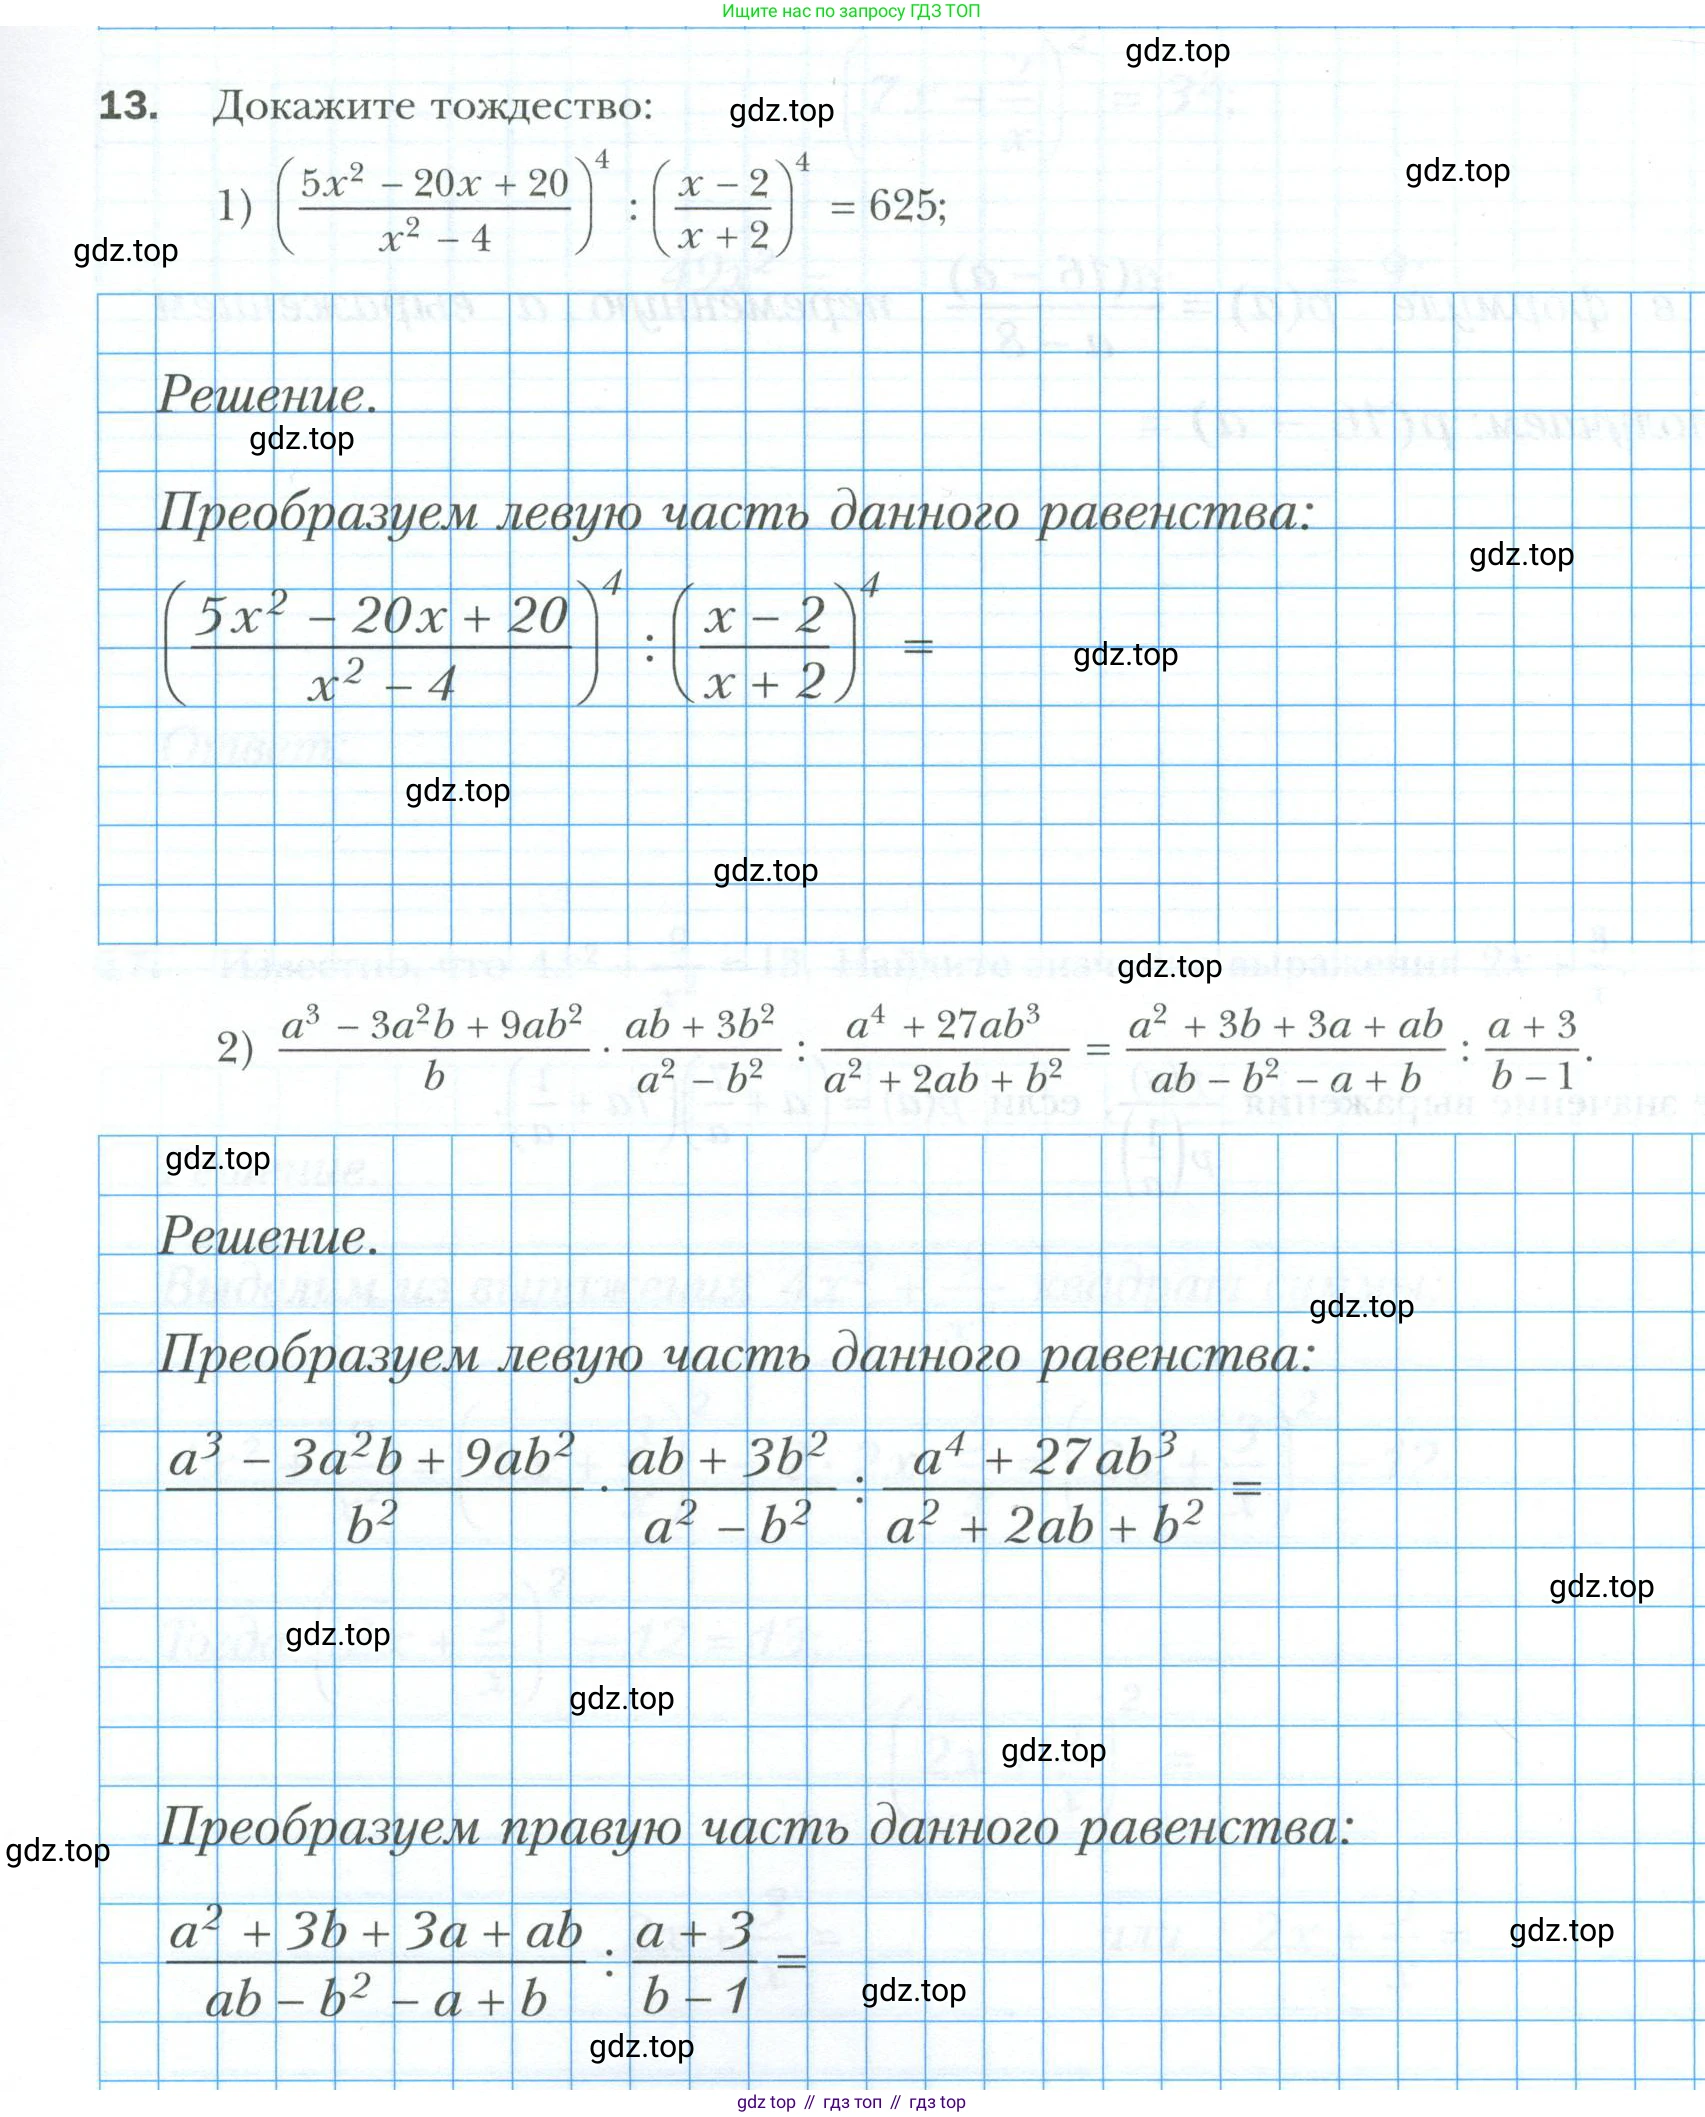 Ищите нас по запросу ГДЗ ТОП
gdz.top
13. Докажите тождество:
gdz.top
1) ((5x² − 20x + 20)/(x² − 4))⁴ : ((x − 2)/(x + 2))⁴ = 625;
gdz.top
gdz.top
Решение.
gdz.top
Преобразуем левую часть данного равенства:
gdz.top
((5x² − 20x + 20)/(x² − 4))⁴ : ((x − 2)/(x + 2))⁴ =
gdz.top
gdz.top
gdz.top
gdz.top
2) (a³ − 3a²b + 9ab²)/b · (ab + 3b²)/(a² − b²) : (a⁴ + 27ab³)/(a² + 2ab + b²) = (a² + 3b + 3a + ab)/(ab − b² − a + b) : (a + 3)/(b − 1).
gdz.top
Решение.
gdz.top
Преобразуем левую часть данного равенства:
(a³ − 3a²b + 9ab²)/b² · (ab + 3b²)/(a² − b²) : (a⁴ + 27ab³)/(a² + 2ab + b²) =
gdz.top
gdz.top
gdz.top
gdz.top
Преобразуем правую часть данного равенства:
gdz.top
(a² + 3b + 3a + ab)/(ab − b² − a + b) : (a + 3)/(b − 1) =
gdz.top
gdz.top
gdz.top
gdz top // гдз топ // гдз top